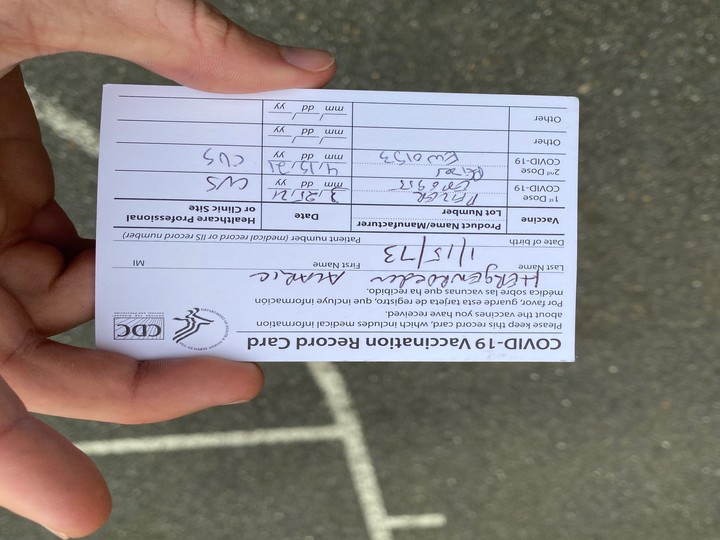 COVID-19 Vaccination Record Card
Please keep this record card, which includes medical information
about the vaccines you have received.
Por favor, guarde esta tarjeta de registro, que incluye información
médica sobre las vacunas que ha recibido.
CDC
HERgenroeder ALARIC
Last Name First Name MI
1/15/73
Date of birth Patient number (medical record or IIS record number)
Vaccine Product Name/Manufacturer Lot Number Date Healthcare Professional or Clinic Site
1st Dose COVID-19 PFIZER 3,25,21 mm dd yy CVS
2nd Dose COVID-19 EW0153 4,15,21 mm dd yy CVS
Other mm dd yy
Other mm dd yy